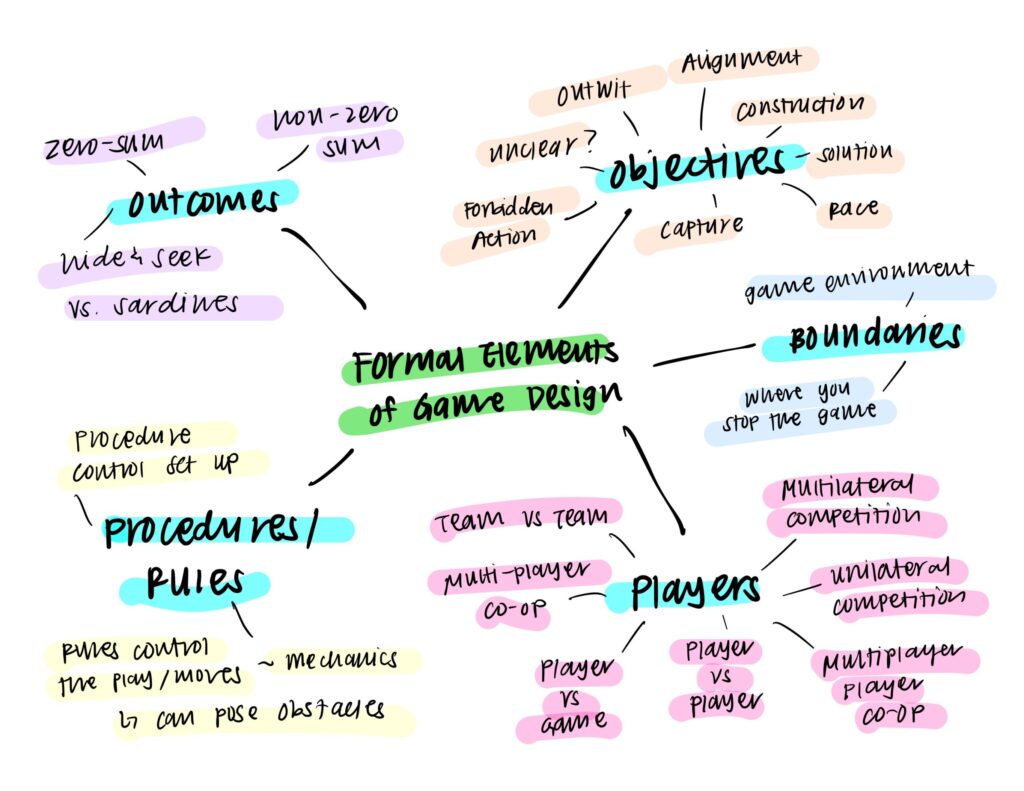 Formal Elements
of Game Design
Outcomes
zero-sum
non-zero
sum
hide & seek
vs. sardines
Objectives
Forbidden
Action
unclear?
outwit
Alignment
construction
solution
Race
capture
Boundaries
game environment
where you
stop the game
Players
Team vs Team
Multi-player
co-op
Player
vs
Game
Player
vs
player
Multiplayer
player
co-op
unilateral
competition
Multilateral
competition
Procedures/
Rules
Procedure
control set up
Rules control
the play/moves
~ mechanics
↳ can pose obstacles